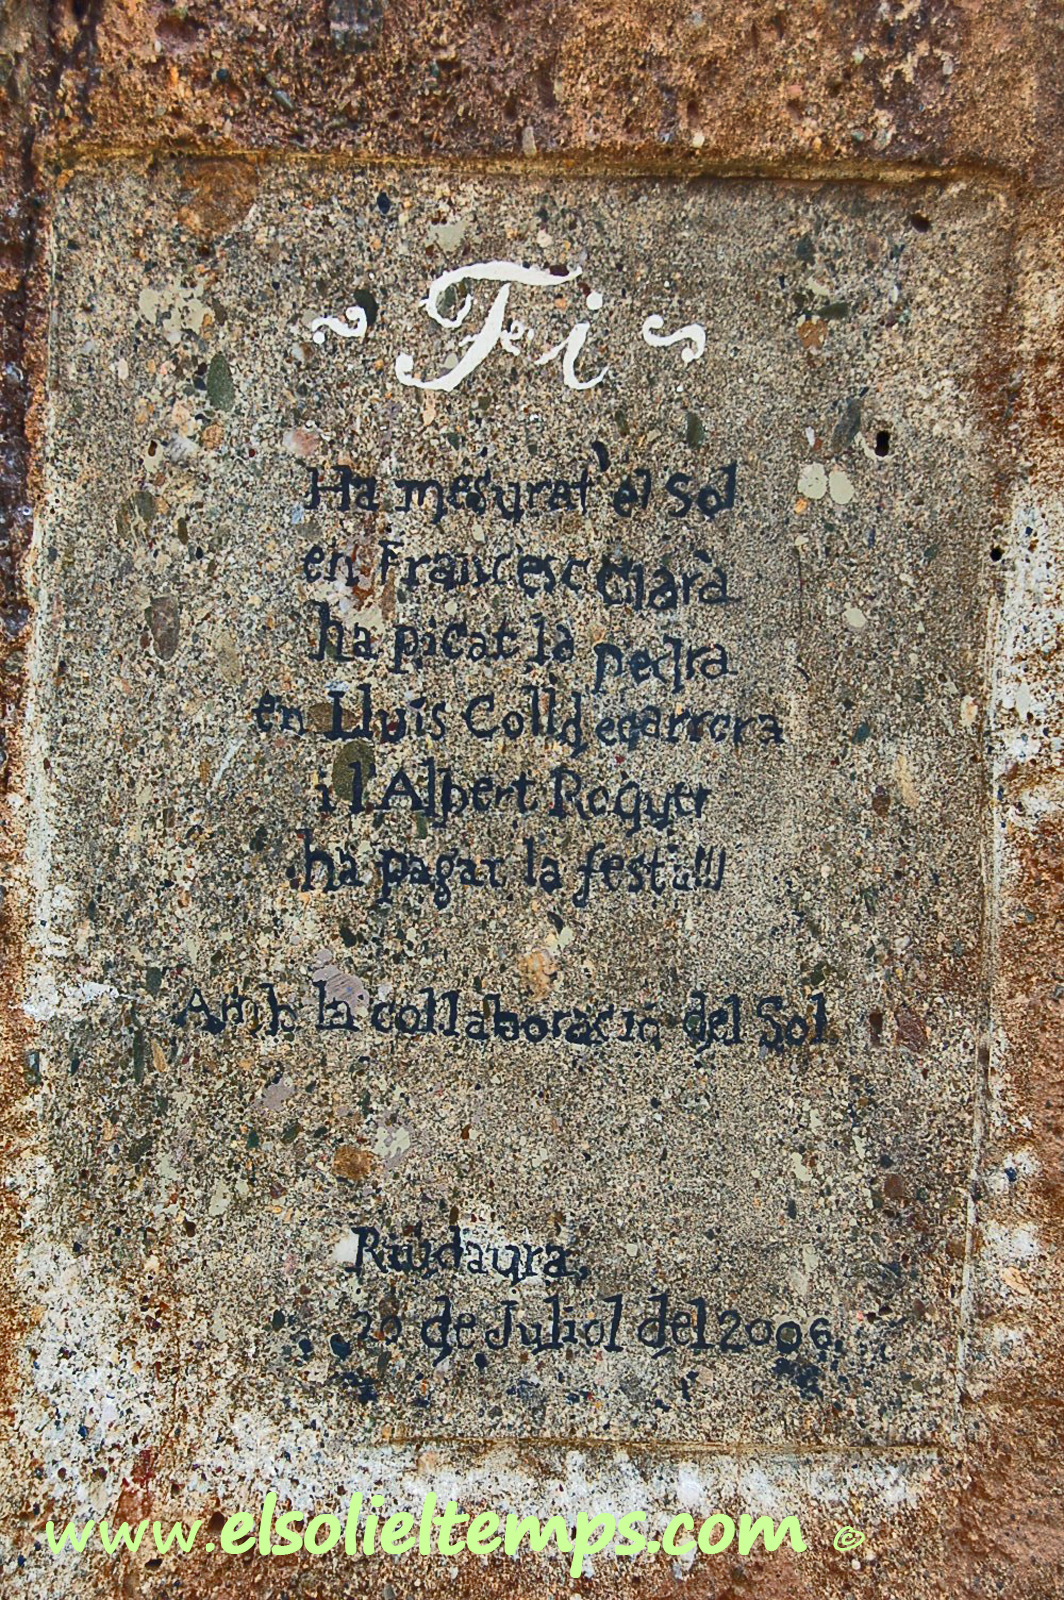 ~ Fei ~
Ha mesurat el Sol
en Francesc Clarà
ha picat la pedra
en Lluís Colldecarrera
i l'Albert Roquer
ha pagat la festa!!!
Amb la col·laboració del Sol.
Riudaura,
20 de Juliol del 2006.
www.elsolieltemps.com ©